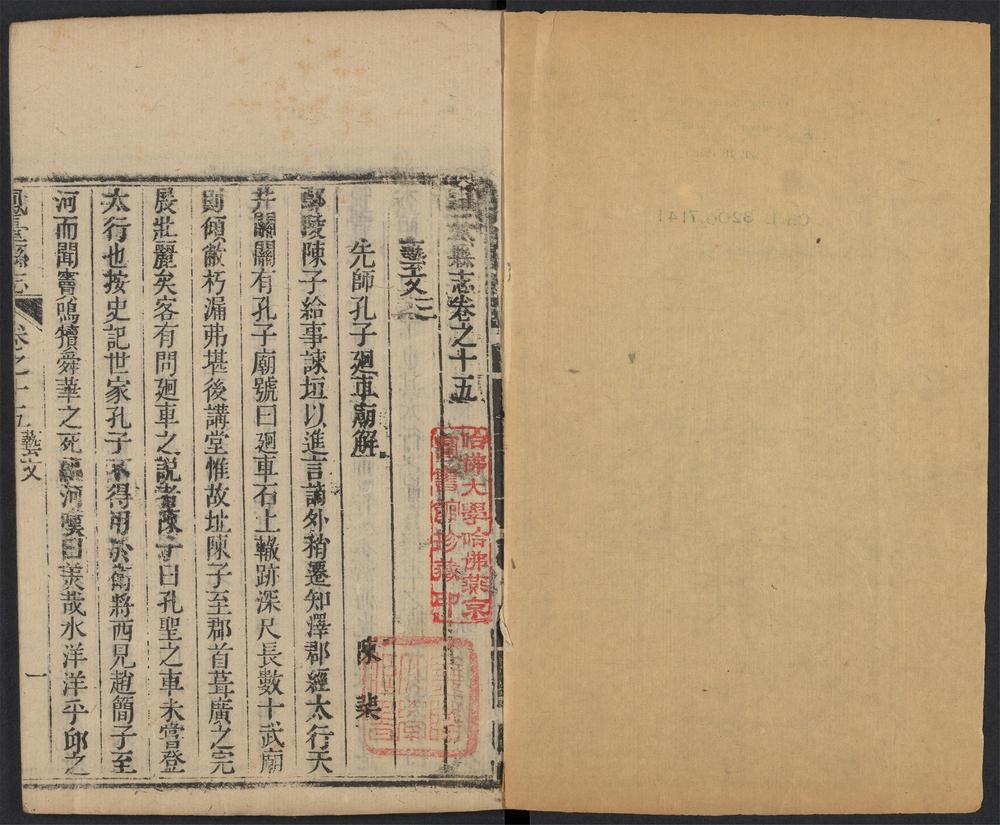 縣志卷之十五
藝文三
先師孔子廻車廟解
陳棐
鄢陵陳子給事諫垣以進言謫外稍遷知澤郡經太行天
井關關有孔子廟號曰廻車石上轍跡深尺長數十武廟
則傾敝朽漏弗堪後講堂惟故址陳子至郡首葺廣之完
展壯麗矣客有問廻車之說者陳子曰孔聖之車未嘗登
太行也按史記世家孔子不得用於衛將西見趙簡子至
河而聞竇鳴犢舜華之死臨河嘆曰美哉水洋洋乎邱之
鳳臺縣志 卷之十五 藝文 一
哈佛大學哈佛燕京
圖書館珍藏印